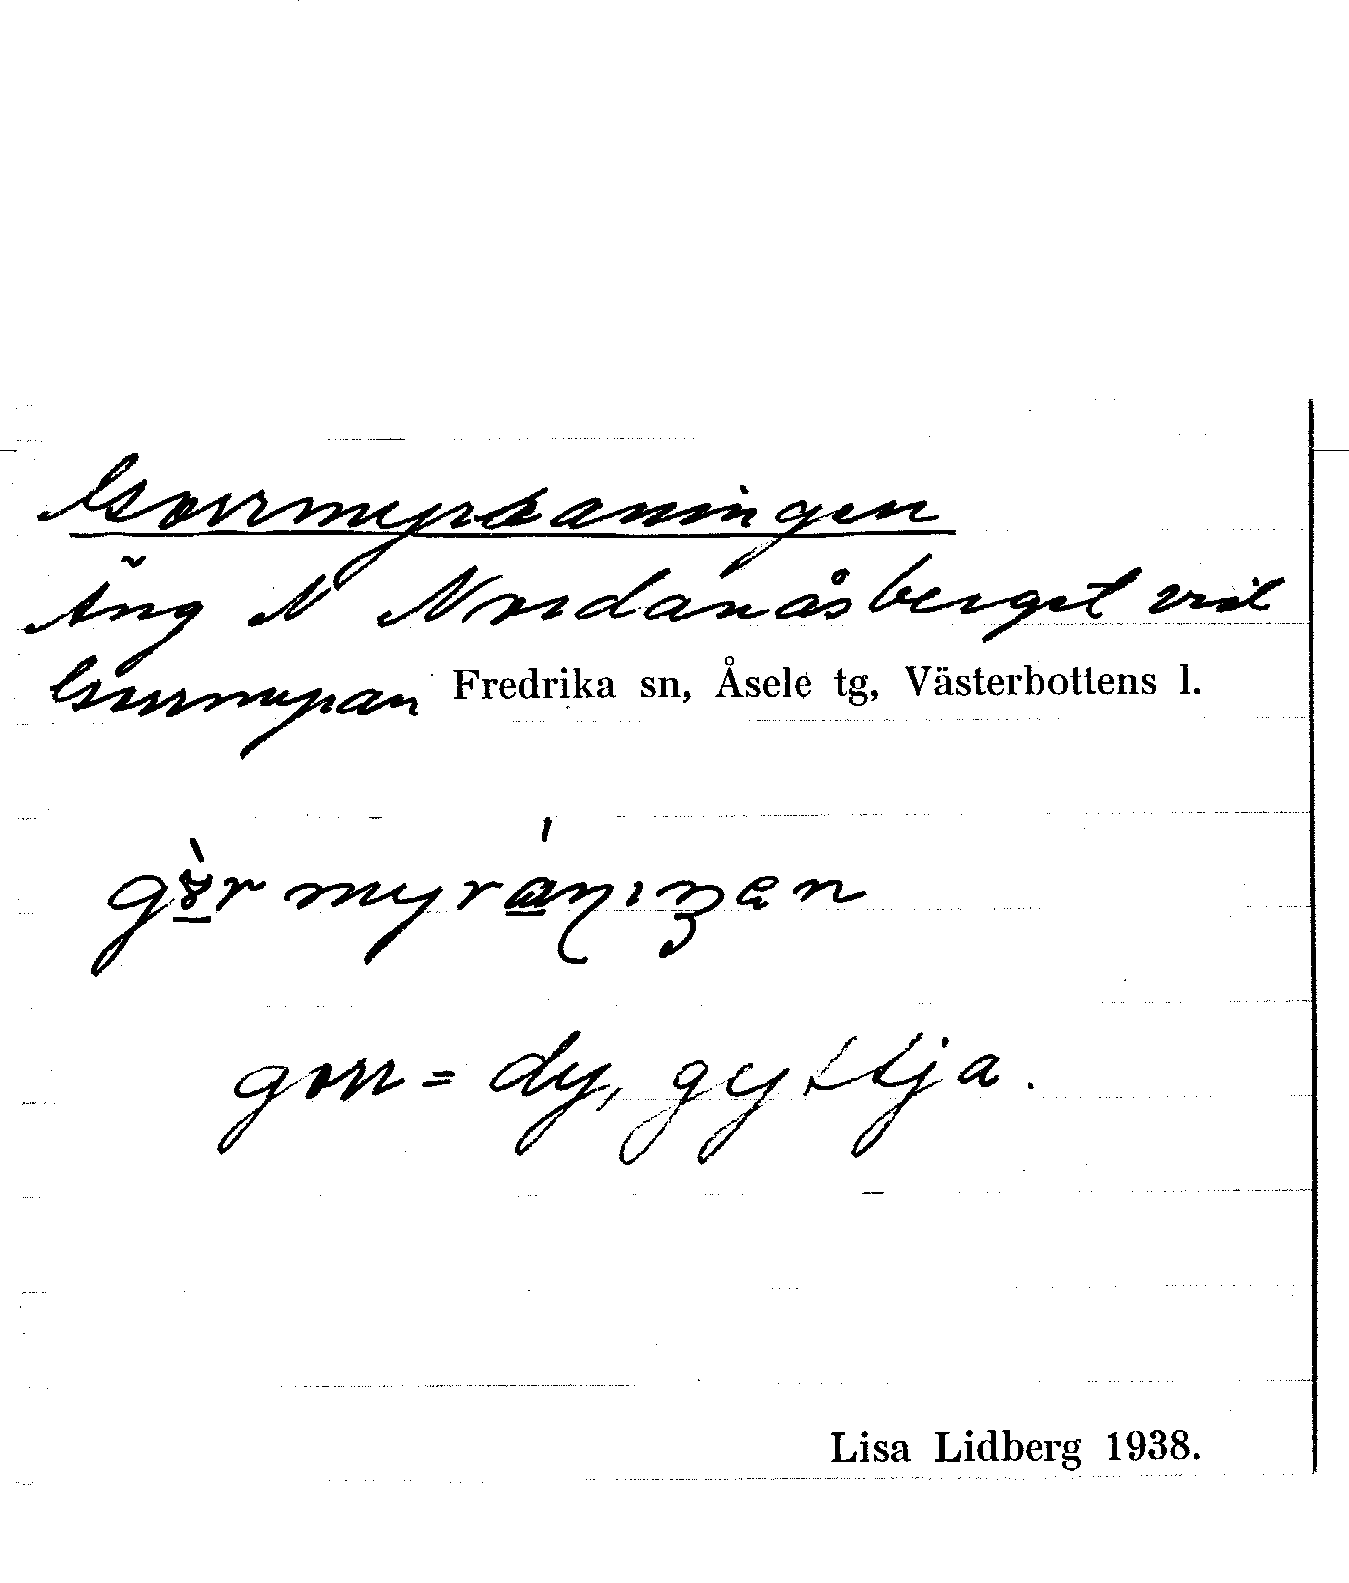 Gorrmyraningen
Äng N Nordanåsberget vid
Gorrmyran Fredrika sn, Åsele tg, Västerbottens l.
gorr = dy, gyttja.
Lisa Lidberg 1938.